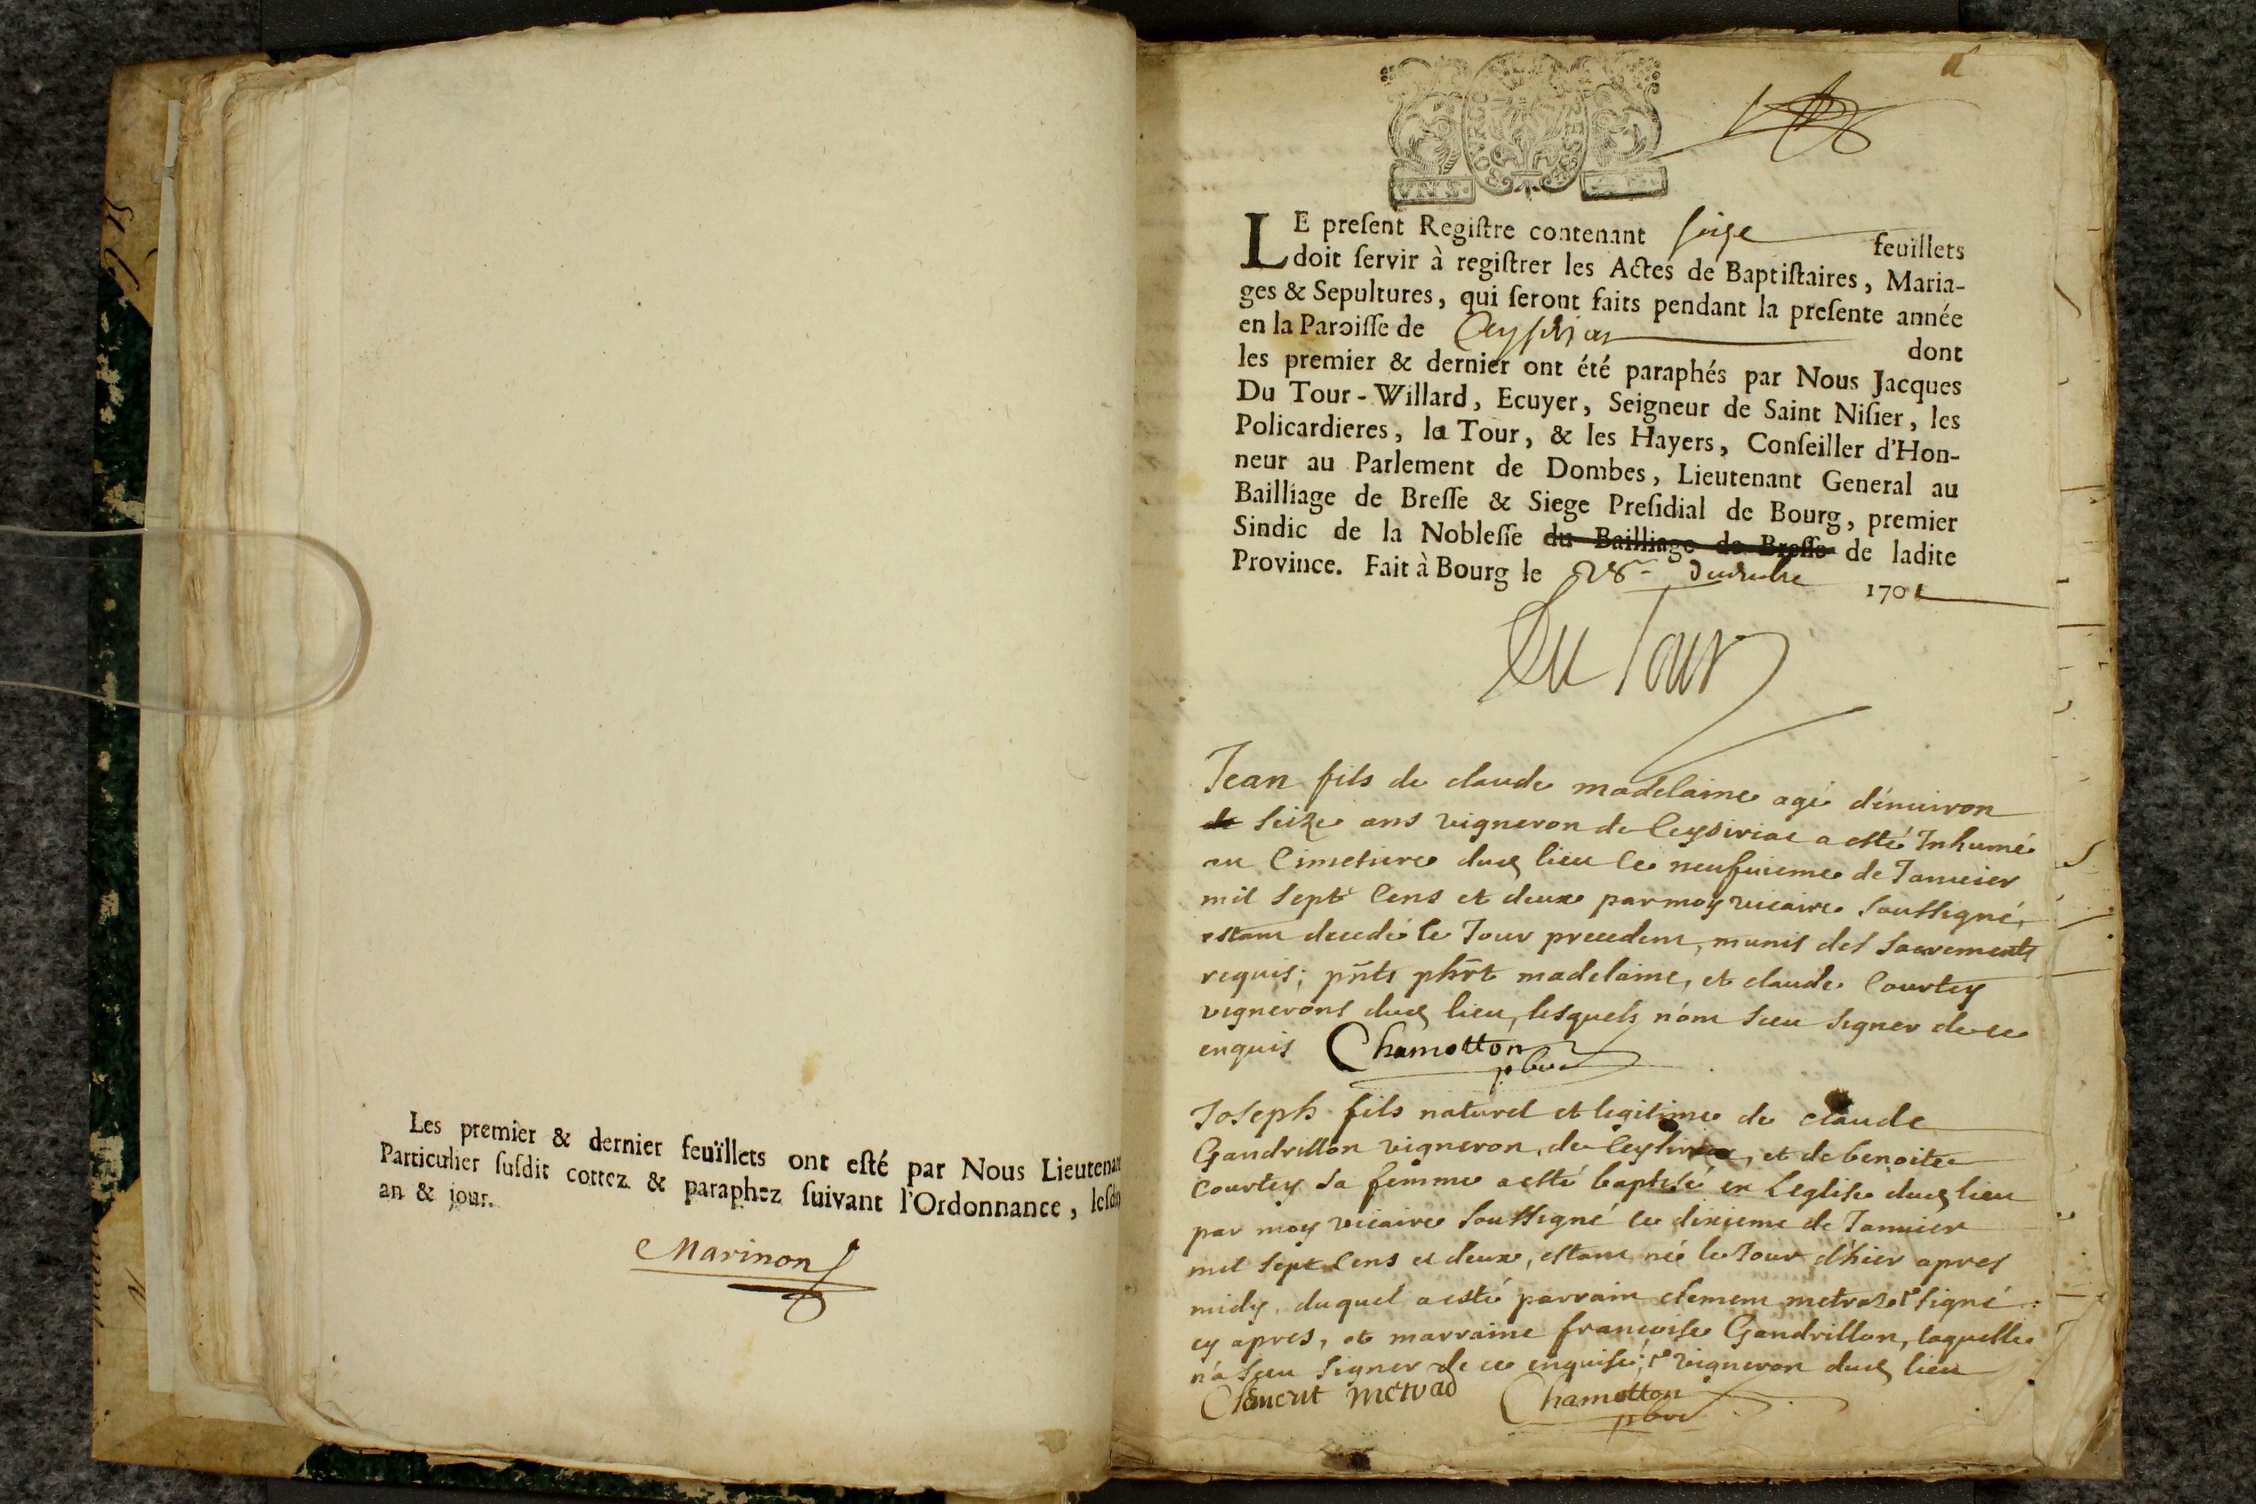 Les premier & dernier feuïllets ont esté par Nous Lieutenan
Particulier susdit cottez & paraphez suivant l'Ordonnance, lesd
an & jour.
Marinon
LE present Registre contenant seize feuillets
doit servir à registrer les Actes de Baptistaires, Maria-
ges & Sepultures, qui seront faits pendant la presente année
en la Paroisse de Ceysiria dont
les premier & dernier ont été paraphés par Nous Jacques
Du Tour-Willard, Ecuyer, Seigneur de Saint Nisier, les
Policardieres, la Tour, & les Hayers, Conseiller d'Hon-
neur au Parlement de Dombes, Lieutenant General au
Bailliage de Bresse & Siege Presidial de Bourg, premier
Sindic de la Noblesse du Bailliage de Bresse de ladite
Province. Fait à Bourg le 28e decembre 1701
Du Tour
Jean fils de claude madelaine agé d'enuiron
de seize ans vigneron de Ceysiriac a esté Inhumé
au Cimetiere dud lieu le neufuieme de Januier
mil sept Cens et deux par moy vicaire soussigné,
estant decedé le Jour precedent, munis des sacrements
requis; pñts phrt madelaine, et claude Courtey
vignerons dud lieu, lesquels n'ont sceu signer de ce
enquis Chamotton
pbre
Joseph fils naturel et legitime de claude
Gandrillon vigneron, de Ceysiria, et de benoite
Courtey sa femme a esté baptisé en L'eglise dud lieu
par moy vicaire soussigné le dixieme de Januier
mil sept Cens et deux, estant né le Jour d'hier apres
midy, duquel a esté parrain clement metraz signé
cy apres, et marraine francoise Gandrillon, laquelle
n'a sceu signer de ce enquise, vigneron dud lieu
Clement metrad Chamotton
pbre